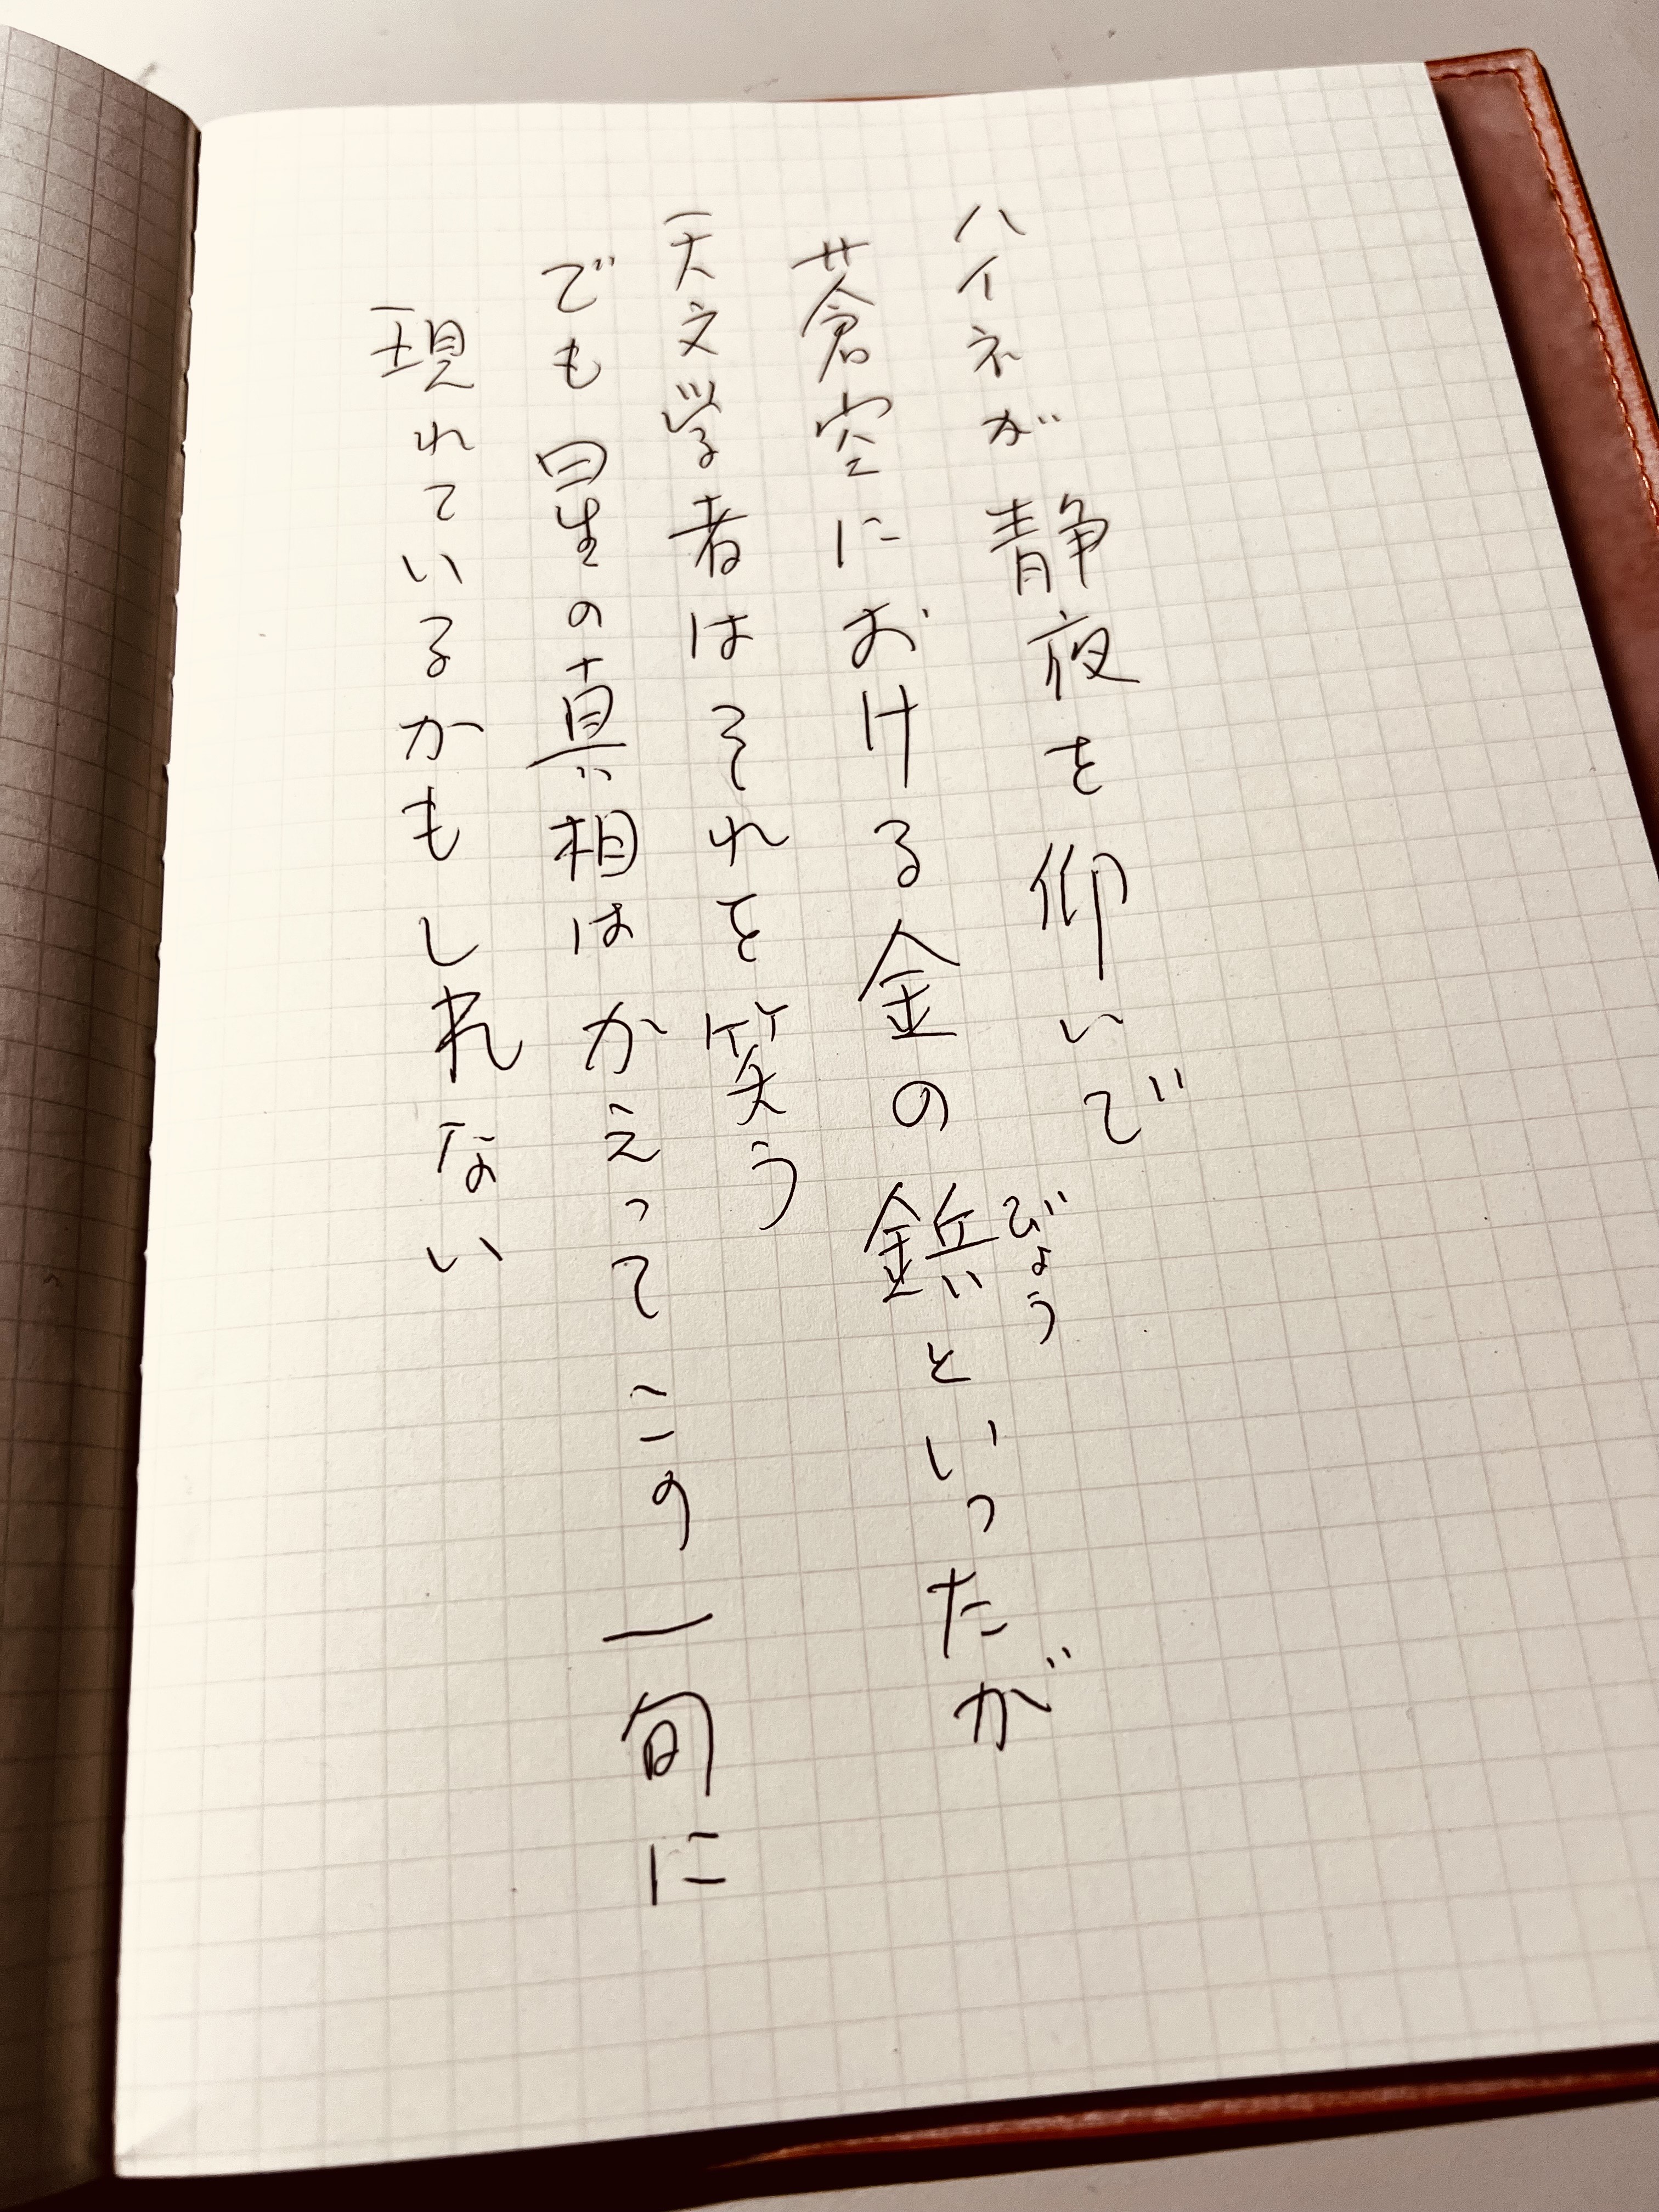 ハイネが静夜を仰いで
蒼空における金の鋲といったが
びょう
天文学者はそれを笑う
でも星の真相はかえってこの一句に
現れているかもしれない